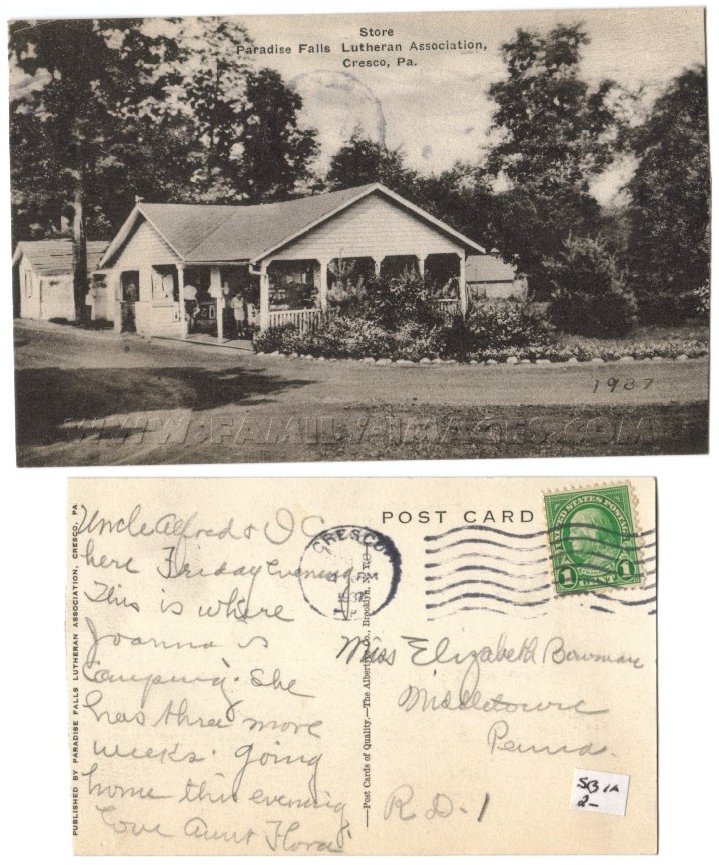 Store
Paradise Falls Lutheran Association,
Cresco, Pa.
1937
WWW.FAMILY-IMAGES.COM
PUBLISHED BY PARADISE FALLS LUTHERAN ASSOCIATION, CRESCO, PA
Uncle Alfred & I C
here Friday evening
This is where
Joanna is
Camping. She
has three more
weeks. going
home this evening
Love Aunt Flora
CRESCO
M
37
—Post Cards of Quality.—The Albertype Co., Brooklyn, N. Y.
POST CARD
UNITED STATES POSTAGE
1 CENT 1
Miss Elizabeth Bowman
Middletown
Penna.
R D-1
2-